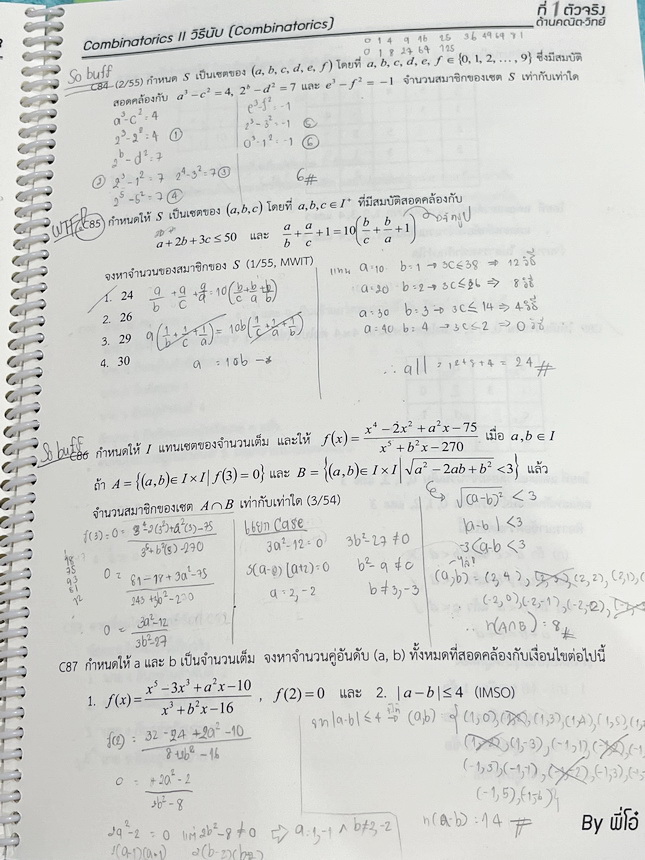 Combinatorics II วิธีนับ (Combinatorics)
ที่ 1 ตัวจริง
ด้านคณิต-วิทย์
0 1 4 9 16 25 36 49 64 81
0 1 8 27 64 125
So buff
C84 (2/55) กำหนด S เป็นเซตของ (a, b, c, d, e, f) โดยที่ a, b, c, d, e, f ∈ {0, 1, 2, …, 9} ซึ่งมีสมบัติ
สอดคล้องกับ a³ − c² = 4, 2ᵇ − d² = 7 และ e³ − f² = −1 จำนวนสมาชิกของเซต S เท่ากับเท่าใด
a³-c² = 4
2³-2² = 4 ①
2ᵇ-d² = 7
2³-1² = 7 2⁴-3² = 7 ③
2⁵-5² = 7 ④
e³-f² = -1
2³-3² = -1
0³-1² = -1
6#
WTF
C85) กำหนดให้ S เป็นเซตของ (a, b, c) โดยที่ a, b, c ∈ I⁺ ที่มีสมบัติสอดคล้องกับ
a + 2b + 3c ≤ 50 และ a/b + a/c + 1 = 10(b/c + b/a + 1)
จงหาจำนวนของสมาชิกของ S (1/55, MWIT)
1. 24
2. 26
3. 29
4. 30
a/b + a/c + a/a = 10(b/c + b/a + b/b)
a(1/b + 1/c + 1/a) = 10b(1/c + 1/a + 1/b)
a = 10b
แทน a=10 b=1 → 3c≤38 ⇒ 12 วิธี
a=20 b=2 → 3c≤26 ⇒ 8 วิธี
a=30 b=3 → 3c≤14 ⇒ 4 วิธี
a=40 b=4 → 3c≤2 ⇒ 0 วิธี
∴ all = 12+8+4 = 24 #
So buff
C86 กำหนดให้ I แทนเซตของจำนวนเต็ม และให้ f(x) = (x⁴ − 2x² + a²x − 75)/(x⁵ + b²x − 270) เมื่อ a, b ∈ I
ถ้า A = {(a, b) ∈ I × I | f(3) = 0} และ B = {(a, b) ∈ I × I | √(a² − 2ab + b²) < 3} แล้ว
จำนวนสมาชิกของเซต A ∩ B เท่ากับเท่าใด (3/54)
0 = (81-18+3a²-75)/(243+3b²-270)
0 = (3a²-12)/(3b²-27)
แยก case
3a²-12 = 0 3b²-27 ≠ 0
3(a-2)(a+2) = 0 b²-9 ≠ 0
a = 2, -2 b ≠ 3, -3
√(a-b)² < 3
|a-b| < 3
-3 < a-b < 3
∴ n(A∩B) = 8 #
C87 กำหนดให้ a และ b เป็นจำนวนเต็ม จงหาจำนวนคู่อันดับ (a, b) ทั้งหมดที่สอดคล้องกับเงื่อนไขต่อไปนี้
1. f(x) = (x⁵ − 3x³ + a²x − 10)/(x³ + b²x − 16) , f(2) = 0 และ 2. |a − b| ≤ 4 (IMSO)
f(2) = (32-24+2a²-10)/(8+2b²-16)
0 = (2a²-2)/(2b²-8)
2a²-2 = 0 แต่ 2b²-8 ≠ 0 ⇒ a = 1, -1 ∧ b ≠ 2, -2
n(a-b) = 14 #
By พี่โอ๋